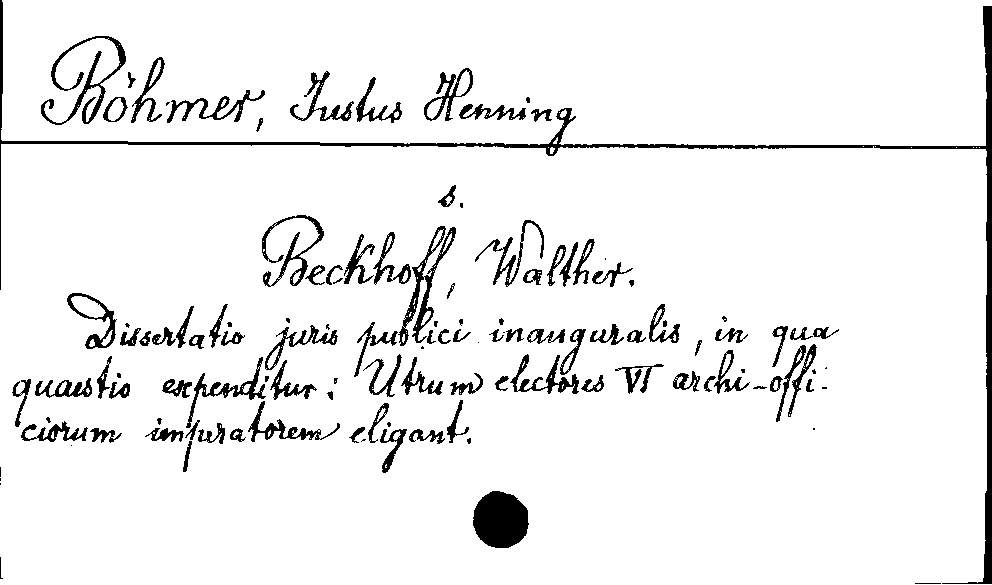 Böhmer, Justus Henning
s.
Beckhoff, Walther.
Dissertatio juris publici inauguralis, in qua
quaestio expenditur: Utrum electores VI archi-offi-
ciorum imperatorem eligant.